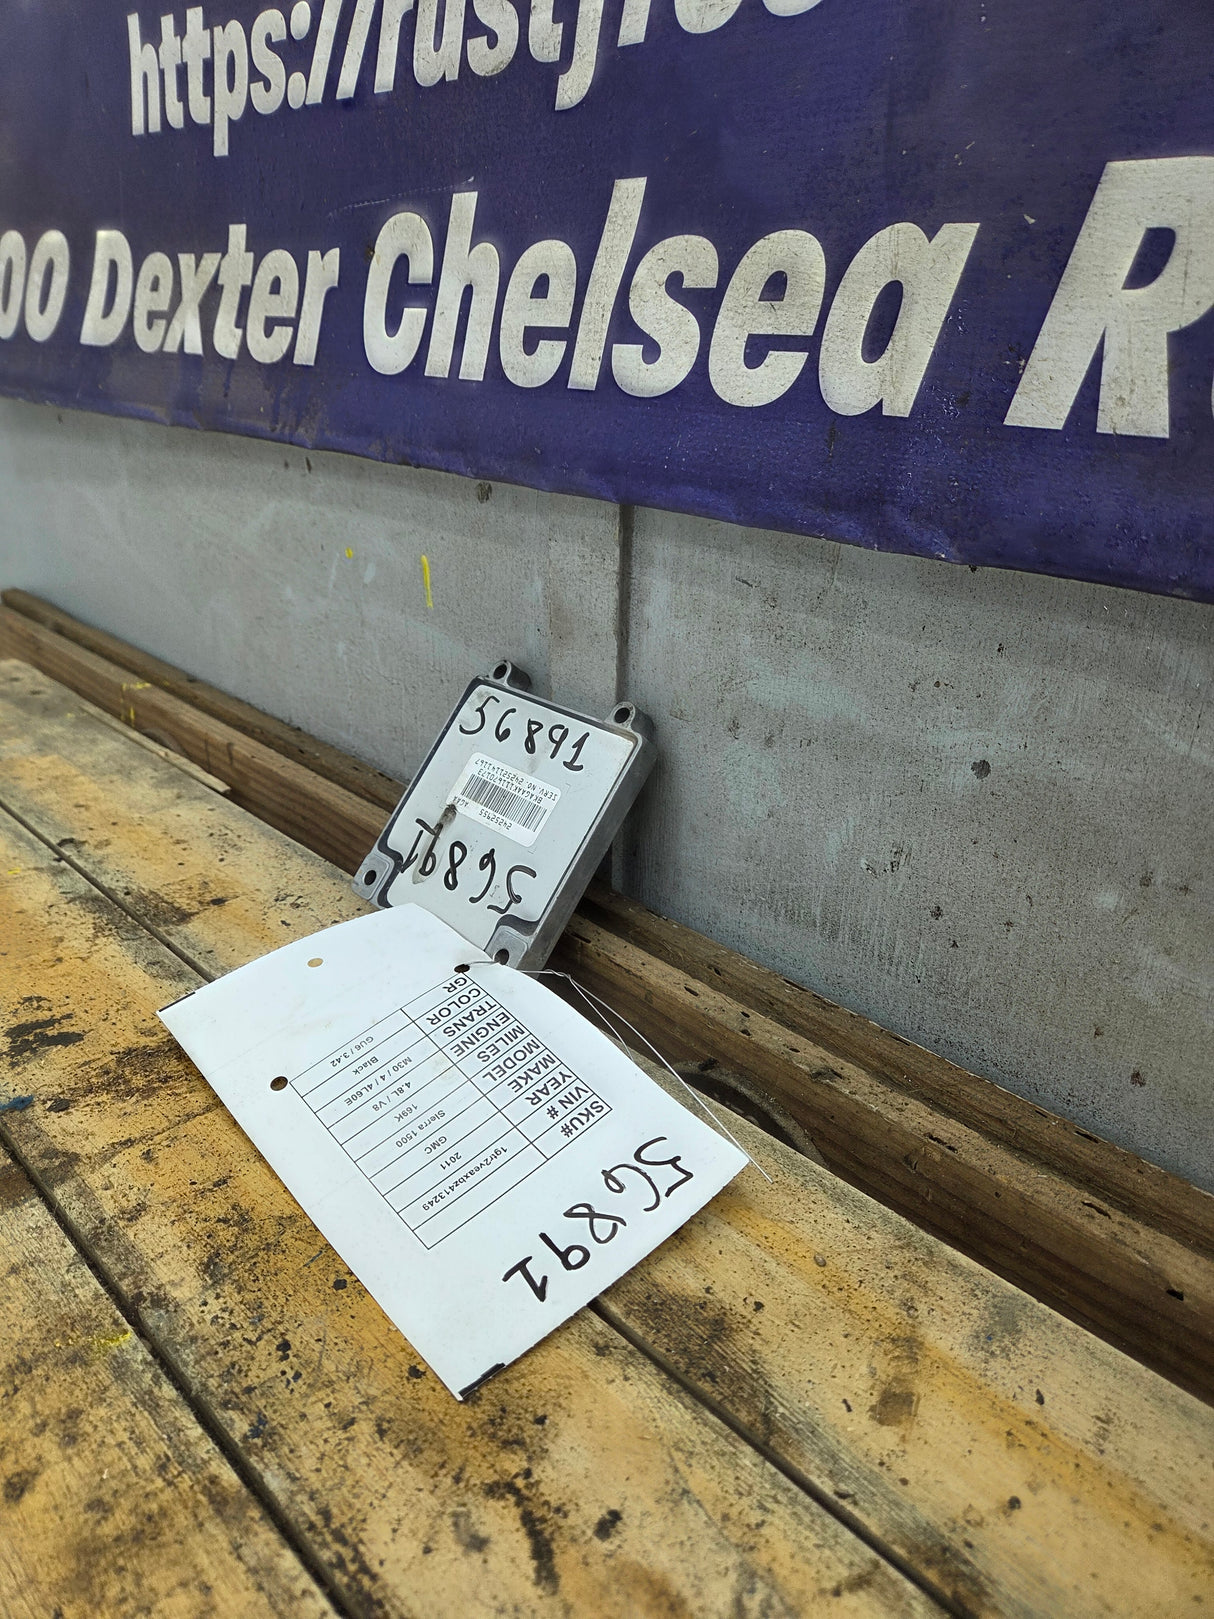 https://rustyfree
00 Dexter Chelsea R
56891
SERV. NO. 24255114J167
24252955 AGAA
56891
56891
SKU#
VIN # 1gtr2veaxbz413249
YEAR 2011
MAKE GMC
MODEL Sierra 1500
MILES 169K
ENGINE 4.8L / V8
TRANS M30 / 4 / 4L60E
COLOR Black
GR GU6 / 3.42